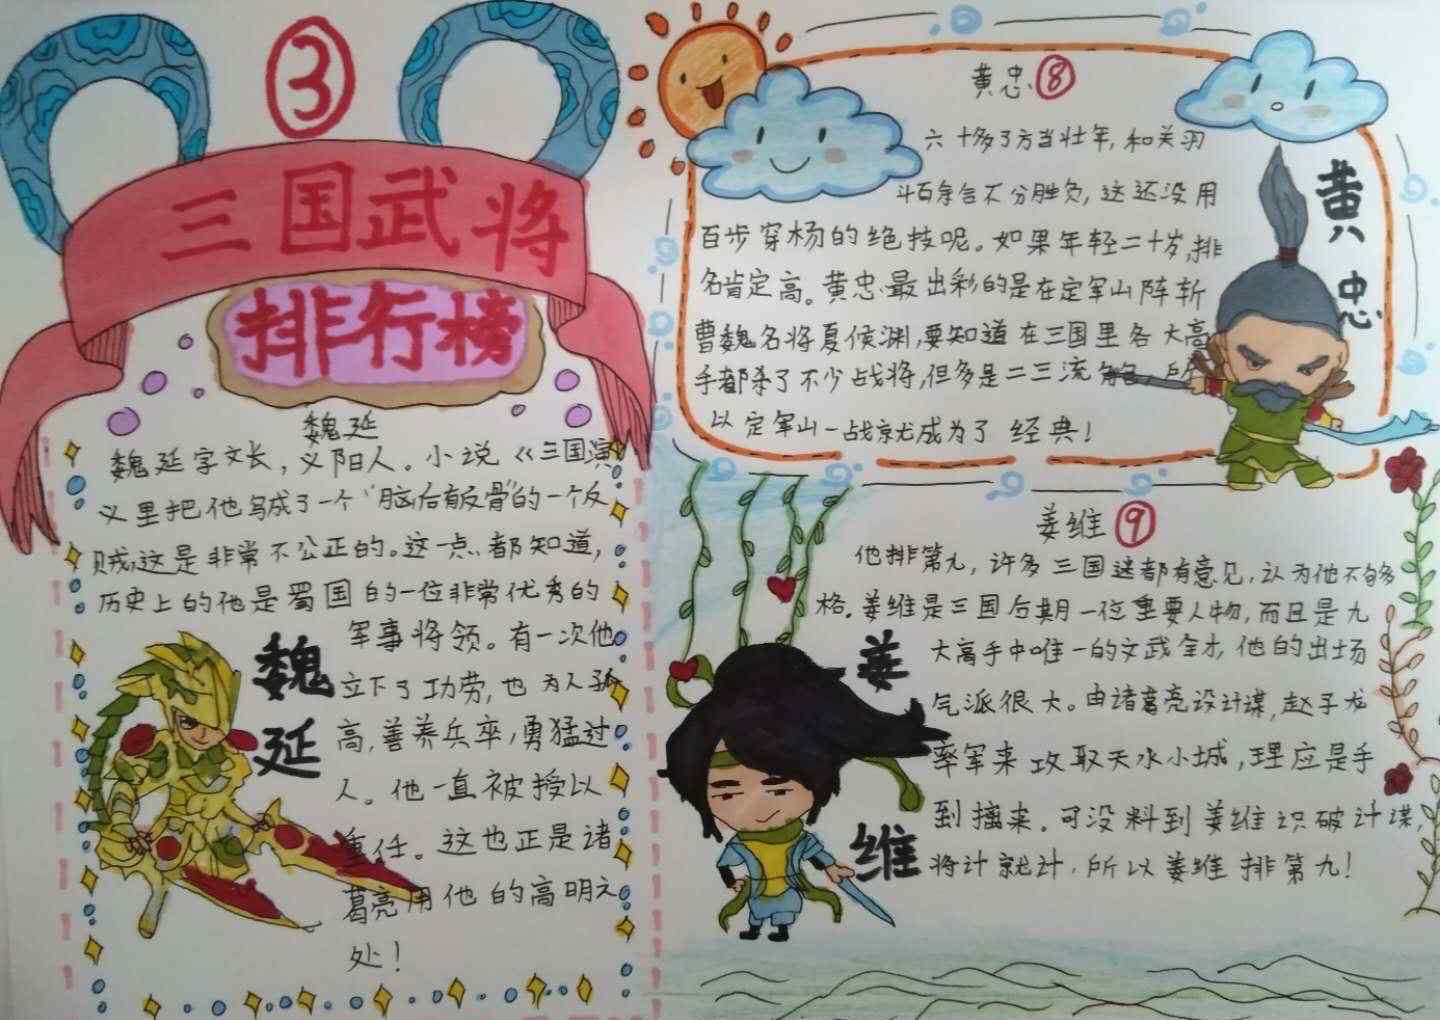 ③
三国武将
排行榜
魏延
魏延字文长，义阳人。小说《三国演
义里把他写成了一个“脑后有反骨”的一个反
贼，这是非常不公正的。这一点，都知道，
历史上的他是蜀国的一位非常优秀的
军事将领。有一次他
立下了功劳，也为人孤
高，善养兵卒，勇猛过
人。他一直被授以
重任。这也正是诸
葛亮用他的高明之
处！
魏延
黄忠⑧
六十多了方当壮年，和关羽
斗百余合不分胜负，这还没用
百步穿杨的绝技呢。如果年轻二十岁，排
名肯定高。黄忠最出彩的是在定军山阵斩
曹魏名将夏侯渊，要知道在三国里各大高
手都杀了不少战将，但多是二三流角色，所
以定军山一战就成为了经典！
黄忠
姜维⑨
他排第九，许多三国迷都有意见，认为他不够
格。姜维是三国后期一位重要人物，而且是九
大高手中唯一的文武全才，他的出场
气派很大。由诸葛亮设计谋，赵子龙
率军来攻取天水小城，理应是手
到擒来。可没料到姜维识破计谋，
将计就计，所以姜维排第九！
姜维